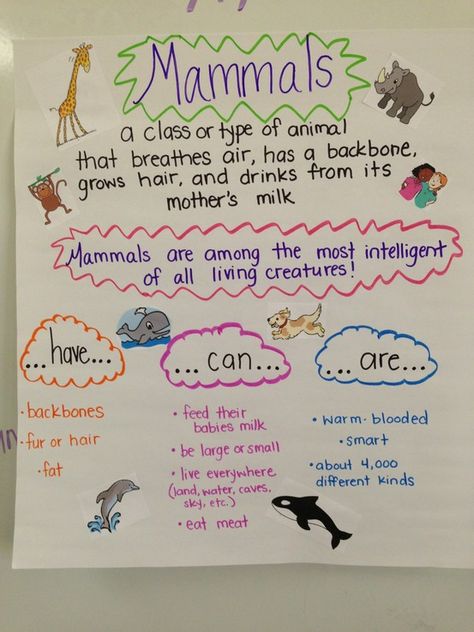 Mammals
a class or type of animal
that breathes air, has a backbone,
grows hair, and drinks from its
mother's milk
Mammals are among the most intelligent
of all living creatures!
...have...
• backbones
• fur or hair
• fat
...can...
• feed their
babies milk
• be large or small
• live everywhere
(land, water, caves,
sky, etc.)
• eat meat
...are...
• warm-blooded
• smart
• about 4,000
different kinds